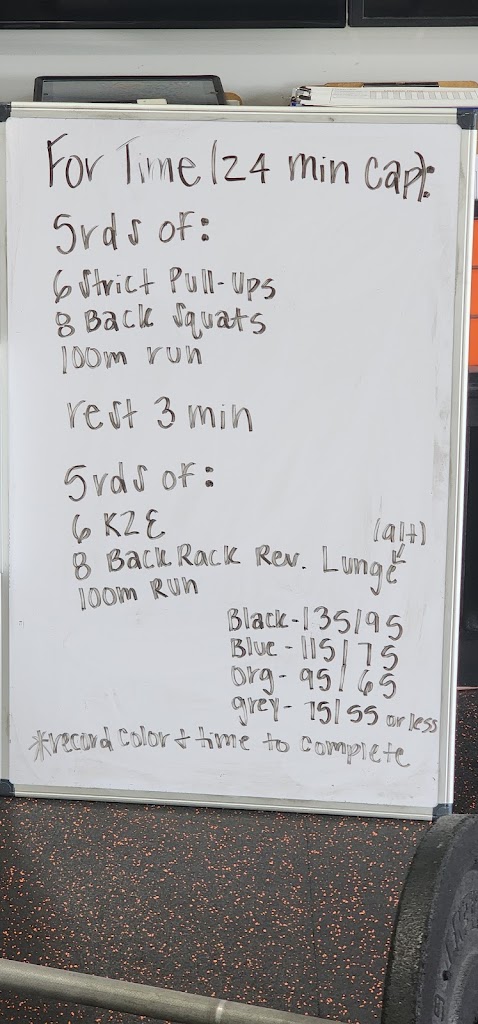 For Time (24 min cap):
5rds of:
6 Strict Pull-Ups
8 Back Squats
100m run
rest 3 min
5rds of:
6 K2E
(alt)
8 Back Rack Rev. Lunge
100m Run
Black - 135/95
Blue - 115/75
Org - 95/65
grey - 75/55 or less
*record color + time to complete